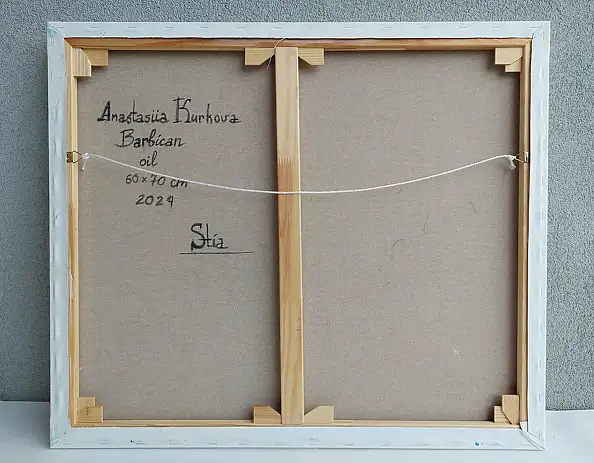 Anastasiia Kurkova
Barbican
oil
60×70 cm
2024
Stia